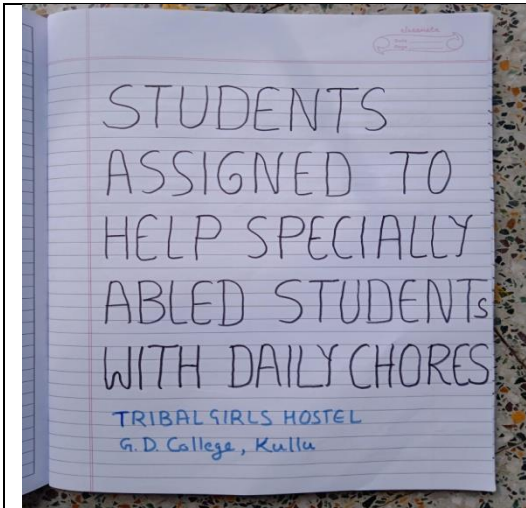 classmate
Date
Page
STUDENTS
ASSIGNED TO
HELP SPECIALLY
ABLED STUDENTs
WITH DAILY CHORES
TRIBAL GIRLS HOSTEL
G.D. College, Kullu